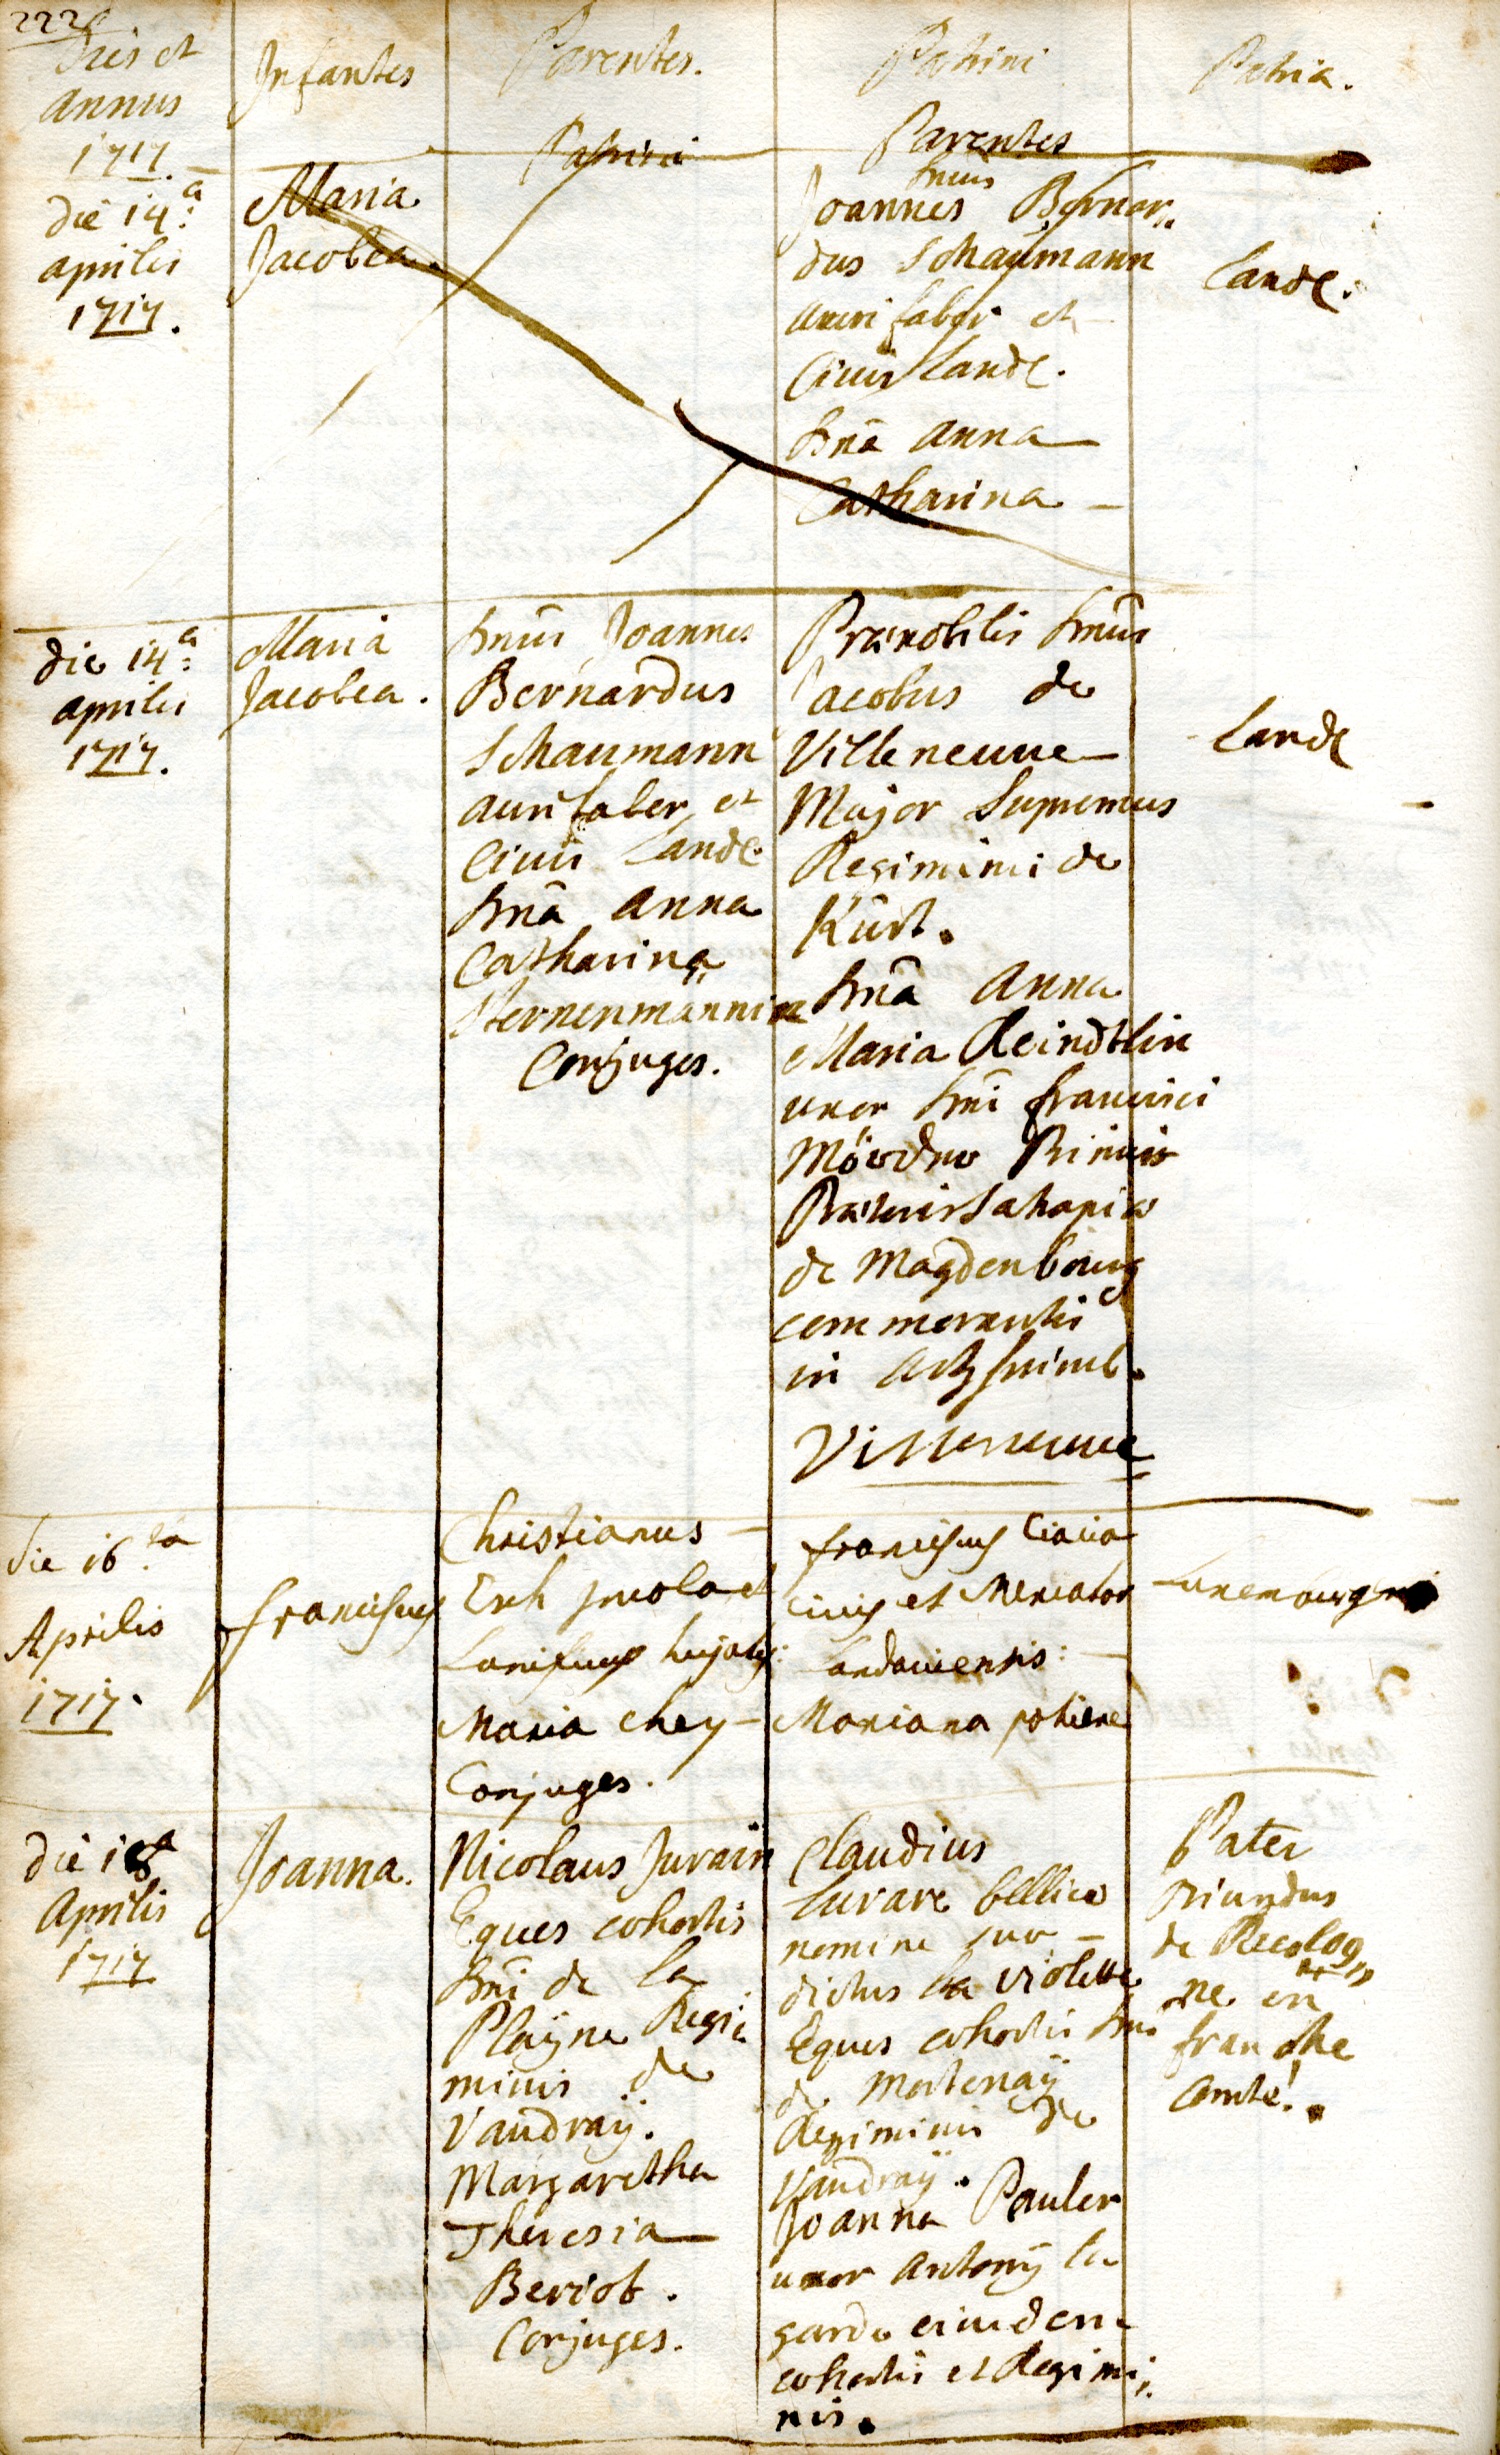 222
Dies et
annus
1717.
Infantes
Parentes.
Patrini
Patria.
Patrini
Parentes
die 14a
aprilis
1717.
Maria
Jacobea.
Joannes Bernar„
dus Schaumann
aurifaber et
Civis Land.
Dna Anna
Catharina
Land.
die 14a
aprilis
1717.
Maria
Jacobea.
Dnus Joannes
Bernardus
Schaumann
aurifaber et
Civis Land.
Dna Anna
Catharina
Sternenmännin
Conjuges.
Prænobilis Dnus
Jacobus de
Villeneuue
Major Supremus
Regiminis de
Kurt.
Dna Anna
Maria Reindtlin
uxor Dni francisci
de Magdenbourg
commorantis
in
Villeneuue
Land.
die 16ta
Aprilis
1717.
franciscus
Christianus
Erh
hujatis:
Maria chey
Conjuges.
franciscus Ciaiia
Civis et Mercator
Landauiensis:
Mariana potiere
die 18a
Aprilis
1717
Joanna.
Nicolaus Jurain
Eques cohortis
Dni de la
Playne Regi:
minis de
Vaudraÿ.
Margaretha
Theresia
Beriot.
Conjuges.
Claudius
Lurare bellico
nomine suo
dictus la violette
Eques cohortis Dni
de Mortenaÿ
Regiminis de
Vaudraÿ.
Joanna Pauler
uxor Antonÿ la
garde eiusdem
cohortis et Regimi„
nis.
Pater
oriundus
de Recolog„
ne en
franche
Comté.